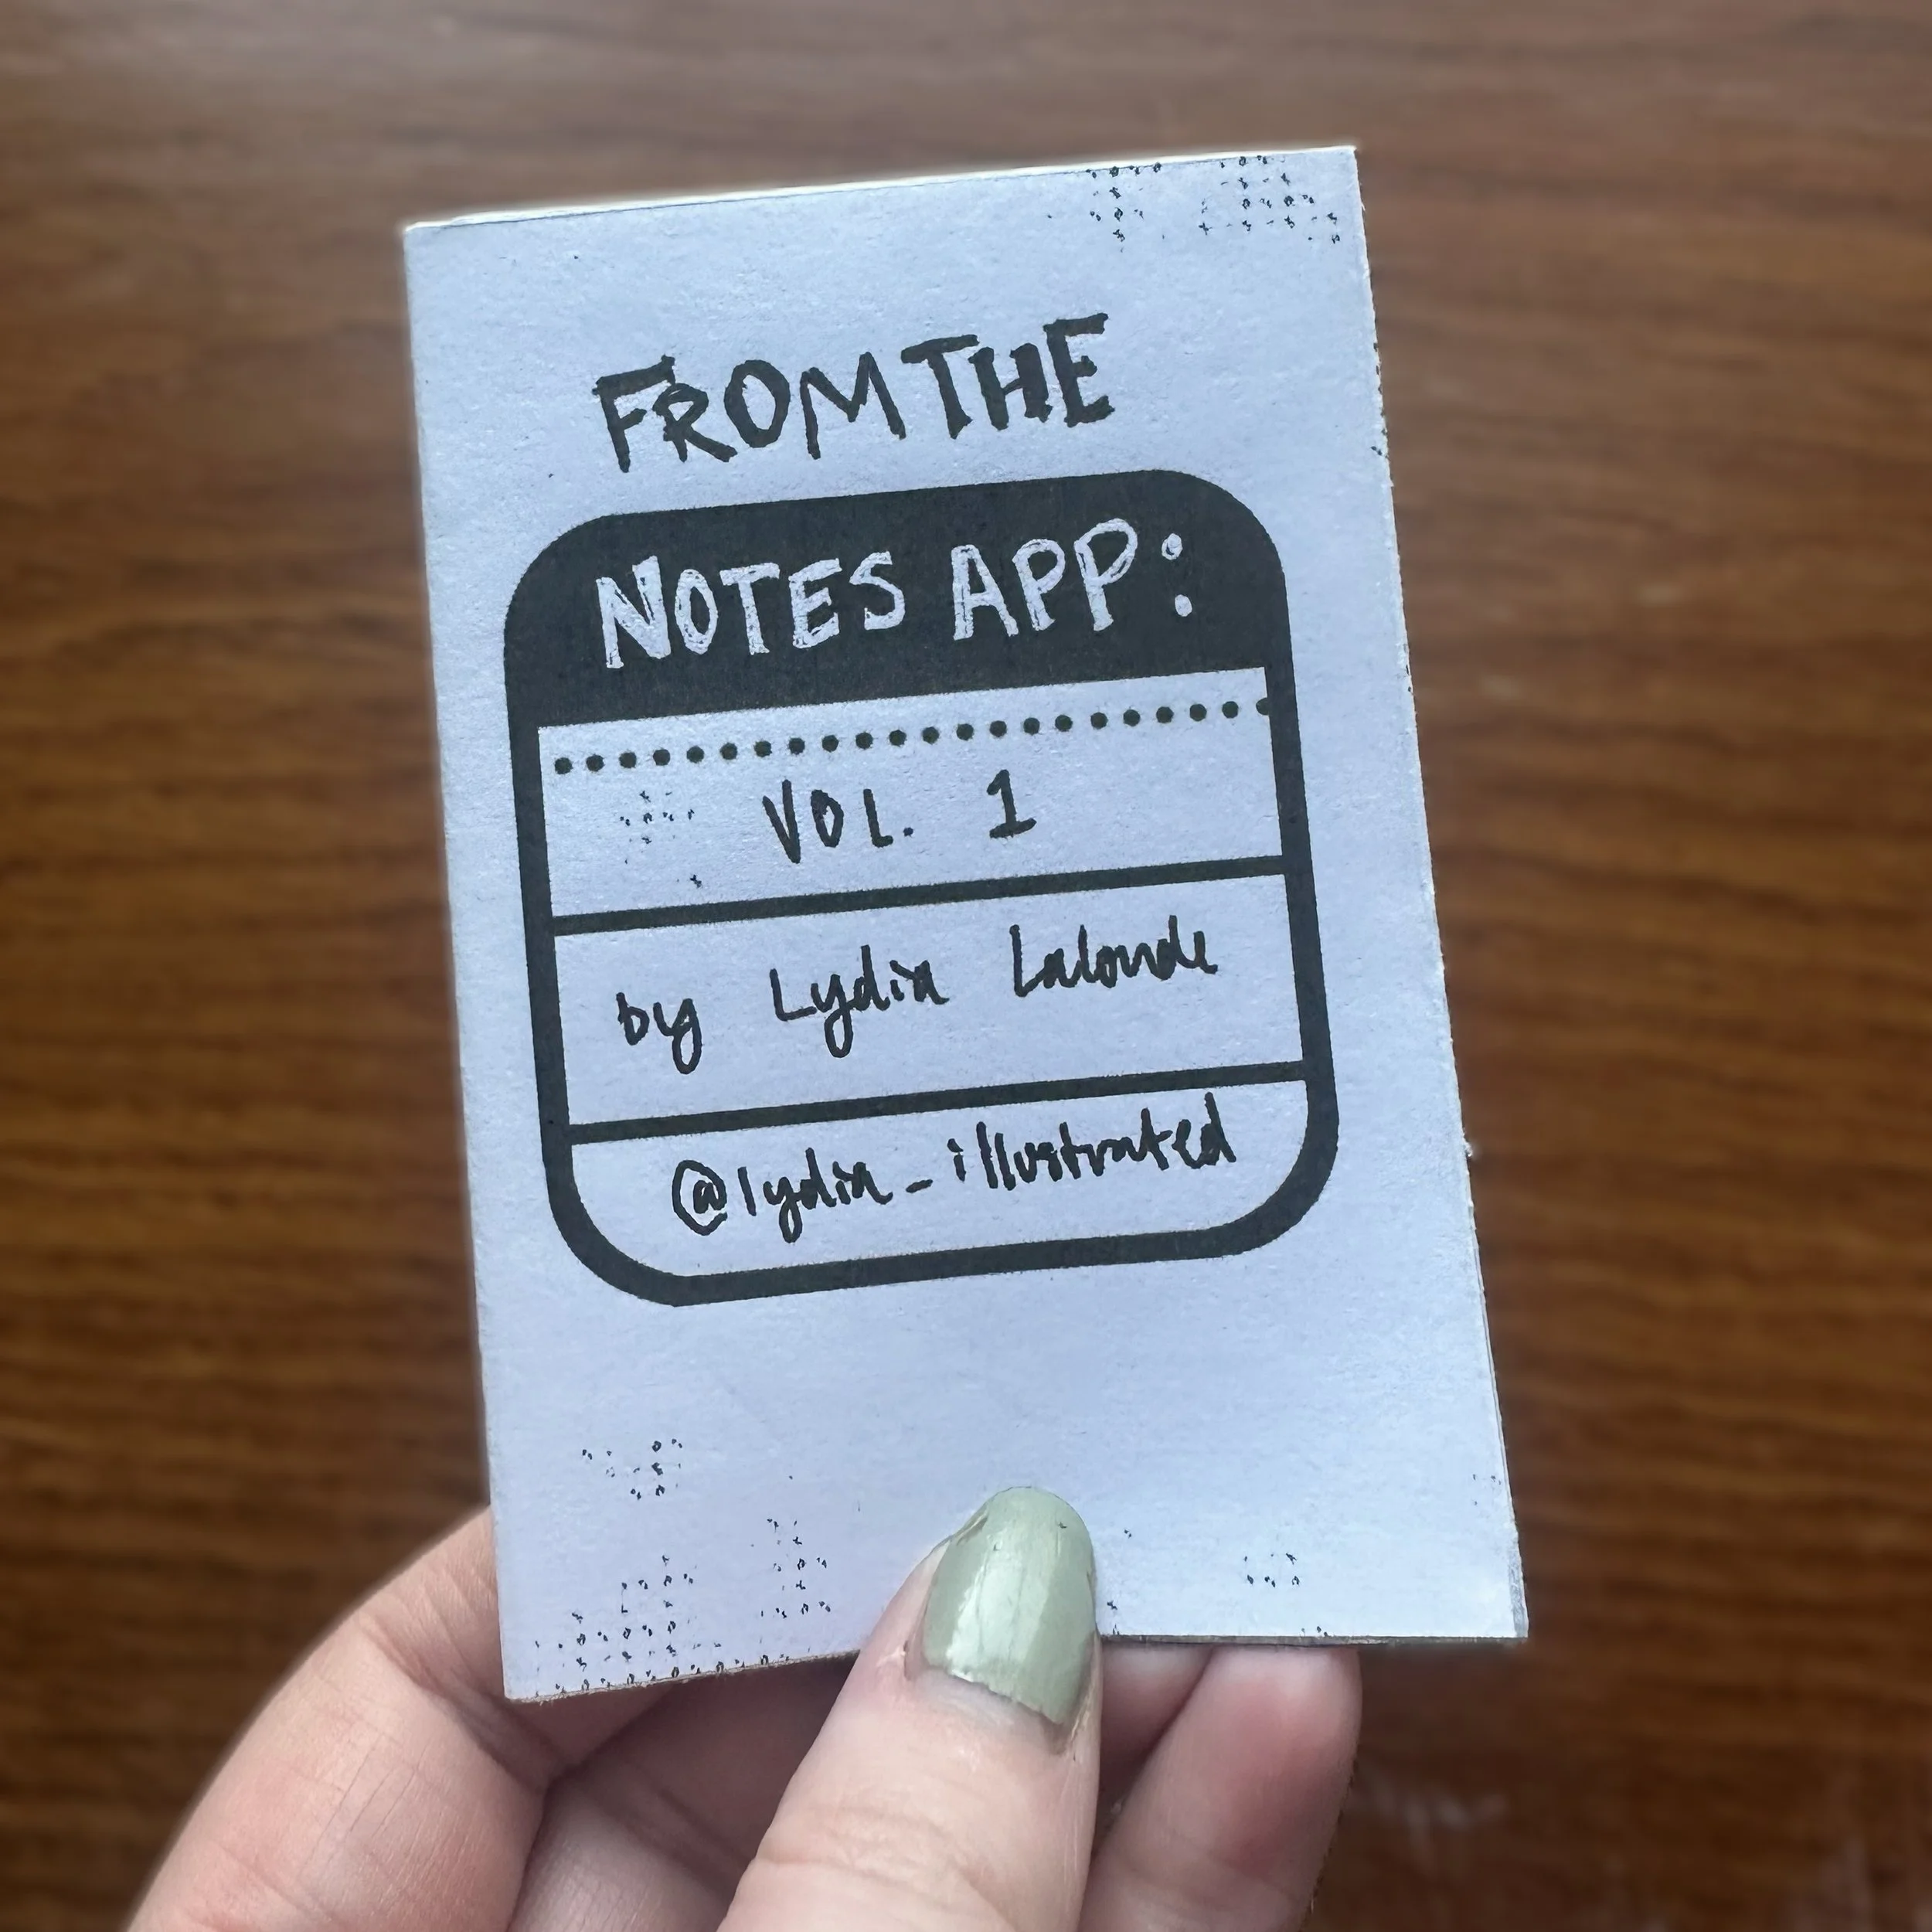 FROM THE
NOTES APP:
VOL. 1
by Lydia Lalonde
@lydia_illustrated